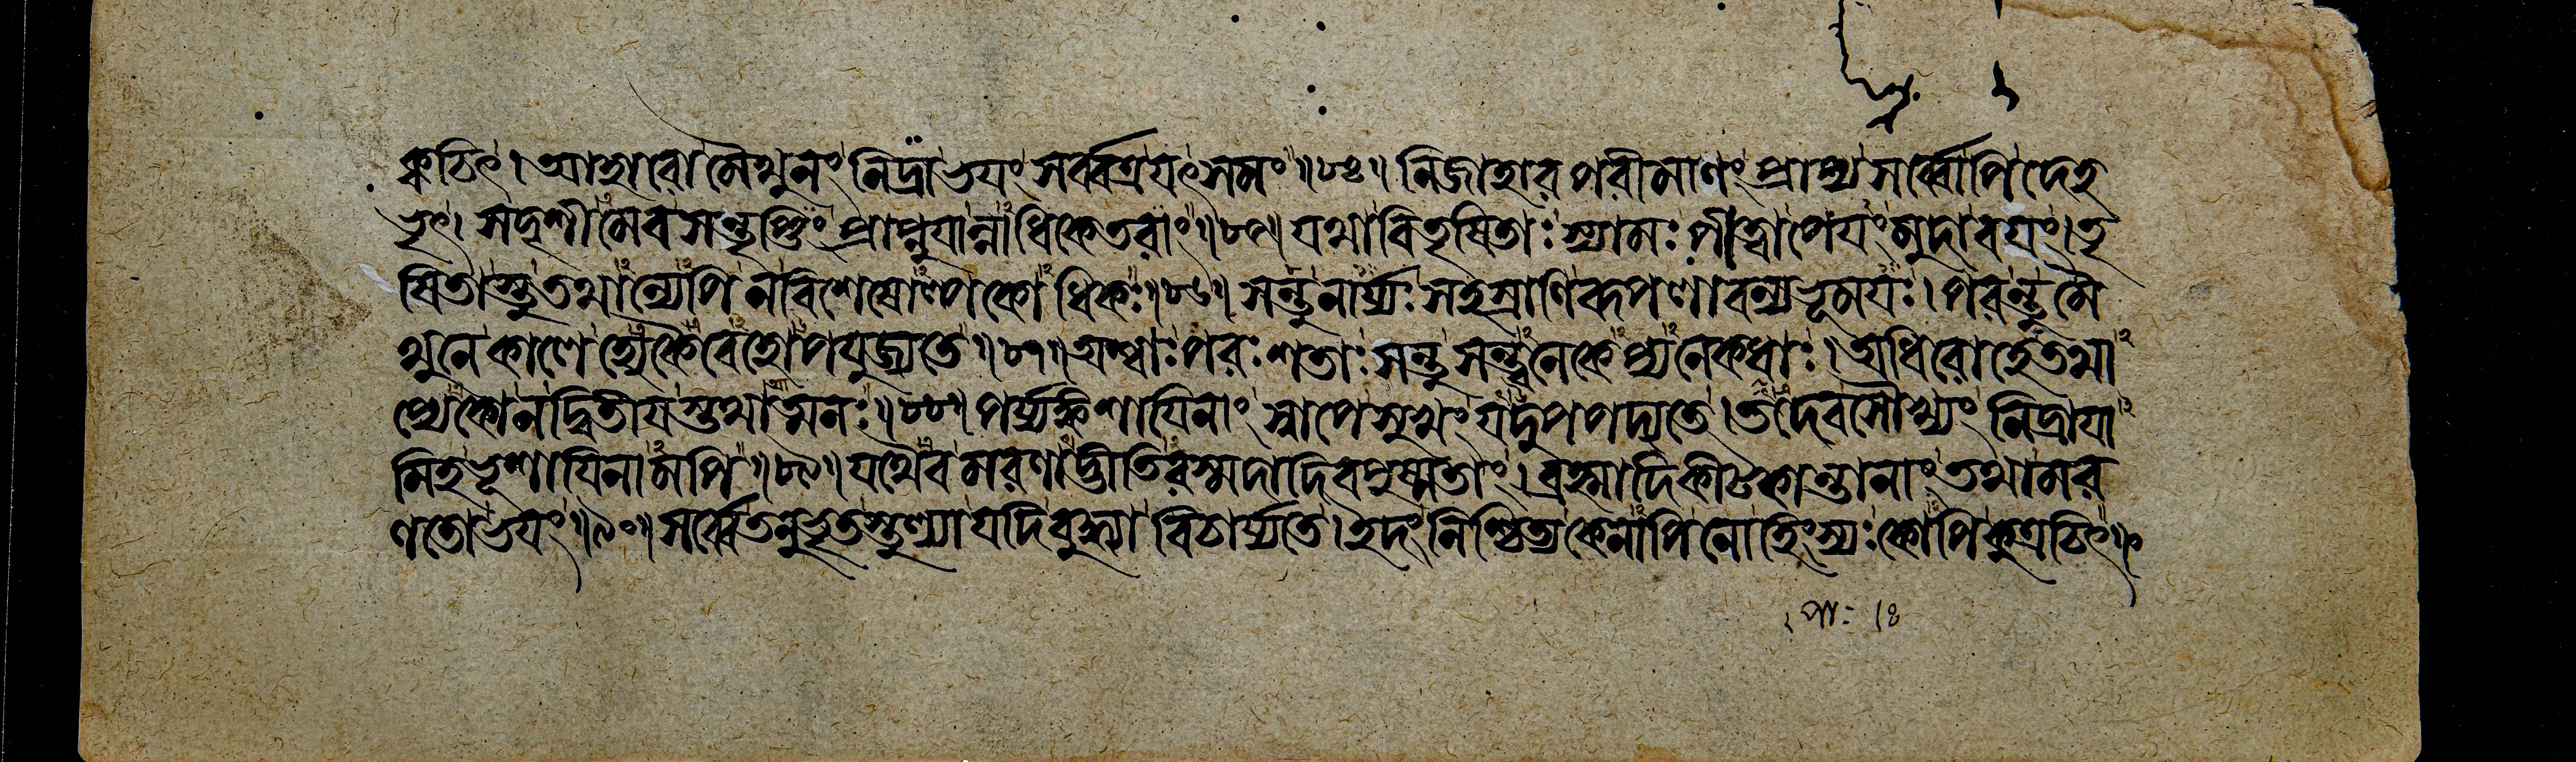 ক্বচিৎ। আহারো মৈথুনং নিদ্রা ভযং সর্ব্বত্র যৎ সমং॥৮৪॥ নিজাহারপরীমাণং প্রাপ্য সর্ব্বোপি দেহ
ভৃৎ। সদৃশীমেব সন্তৃপ্তিং প্রাপ্নুযান্নাধিকেতরাং॥৮৫॥ যথা বিতৃষিতাঃ স্যামঃ পীত্বা পেযং মুদা বযং। তৃ
ষিতাস্তু তথান্যেপি ন বিশেষোল্পকোধিকঃ॥৮৬॥ সন্তু নার্য্যঃ সহস্রাণি রূপলাবণ্যভূমযঃ। পরন্তু মৈ
থুনে কালে হ্যেকৈবেহোপযুজ্যতে॥৮৭॥ অশ্বাঃ পরঃশতাঃ সন্তু সন্ত্বনেকেপ্যনেকধাঃ। অধিরোহে তথা
প্যেকো ন দ্বিতীযস্তথাত্মনঃ॥৮৮॥ পর্য্যঙ্কশাযিনাং স্বাপে সুখং যদুপপদ্যতে। তদেব সৌখ্যং নিদ্রাযা
মিহ ভূশাযিনামপি॥৮৯॥ যথৈব মরণাদ্ভীতিরস্মদাদিবপুষ্মতাং। ব্রহ্মাদিকীটকান্তানাং তথা মর
ণতো ভযং॥৯০॥ সর্ব্বে তনুভৃতস্তুল্যা যদি বুদ্ধ্যা বিচার্য্যতে। ইদং নিশ্চিত্য কেনাপি নো হিংস্যঃ কোপি কুত্রচিৎ॥৯